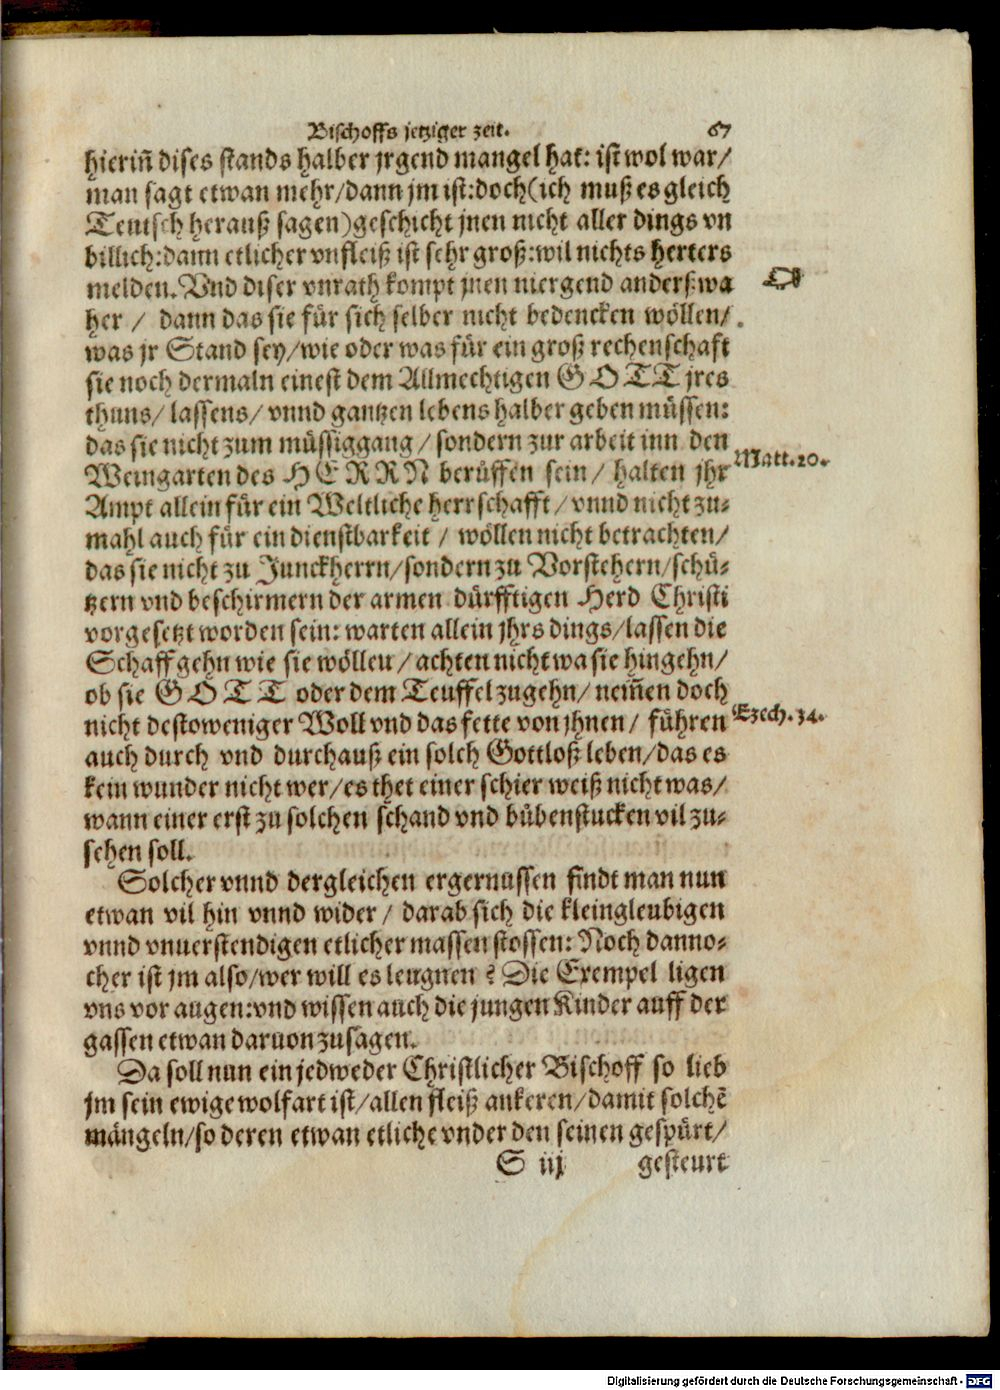 Bischoffs jetziger zeit. 67
hieriñ dises stands halber jrgend mangel hat: ist wol war/
man sagt etwan mehr/dann jm ist:doch(ich muß es gleich
Teutsch herauß sagen)geschicht jnen nicht aller dings vn
billich:dann etlicher vnfleiß ist sehr groß:wil nichts herters
melden. Vnd diser vnrath kompt jnen niergend anderßwa
her / dann das sie für sich selber nicht bedencken wöllen/
was jr Stand sey/wie oder was für ein groß rechenschaft
sie noch dermaln einest dem Allmechtigen GOTT jres
thuns/ lassens/ vnnd gantzen lebens halber geben müssen:
das sie nicht zum müssiggang / sondern zur arbeit inn den
Matt.20.
Weingarten des HERRN berüffen sein/ halten jhr
Ampt allein für ein Weltliche herrschafft/ vnnd nicht zu-
mahl auch für ein dienstbarkeit / wöllen nicht betrachten/
das sie nicht zu Junckherrn/sondern zu Vorstehern/schü-
tzern vnd beschirmern der armen dürfftigen Herd Christi
vorgesetzt worden sein: warten allein jhrs dings/lassen die
Schaff gehn wie sie wöllen/ achten nicht wa sie hingehn/
ob sie GOTT oder dem Teuffel zugehn/ nem̃en doch
nicht destoweniger Woll vnd das fette von jhnen/ führen
Ezech.34.
auch durch vnd durchauß ein solch Gottloß leben/das es
kein wunder nicht wer/es thet einer schier weiß nicht was/
wann einer erst zu solchen schand vnd bübenstucken vil zu-
sehen soll.
Solcher vnnd dergleichen ergernussen findt man nun
etwan vil hin vnnd wider/ darab sich die kleingleubigen
vnnd vnuerstendigen etlicher massen stossen: Noch danno-
cher ist jm also/wer will es leugnen? Die Exempel ligen
vns vor augen:vnd wissen auch die jungen Kinder auff der
gassen etwan daruon zusagen.
Da soll nun ein jedweder Christlicher Bischoff so lieb
jm sein ewige wolfart ist/allen fleiß ankeren/damit solchẽ
mängeln/so deren etwan etliche vnder den seinen gespürt/
S iij gesteurt
Digitalisierung gefördert durch die Deutsche Forschungsgemeinschaft - DFG